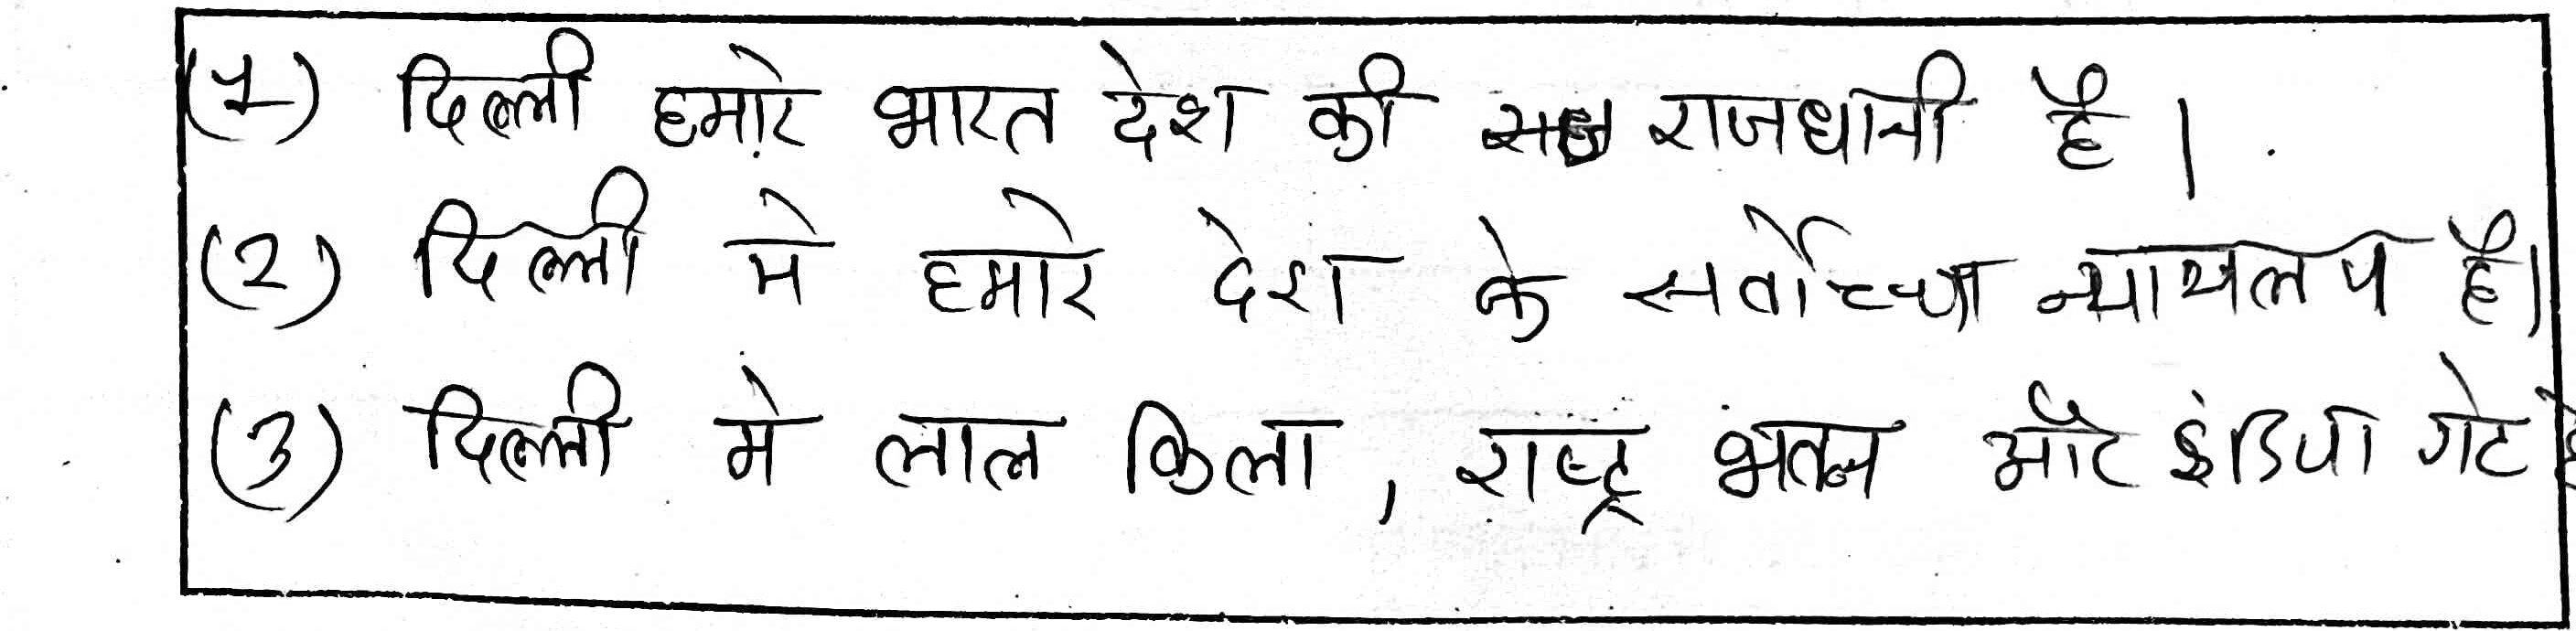 (1) दिल्ली हमारे भारत देश की राजधानी है ।
(2) दिल्ली मे हमारे देश के सर्वोच्च न्यायलय है।
(3) दिल्ली मे लाल किला , राष्ट्र भवन और इंडिया गेट है